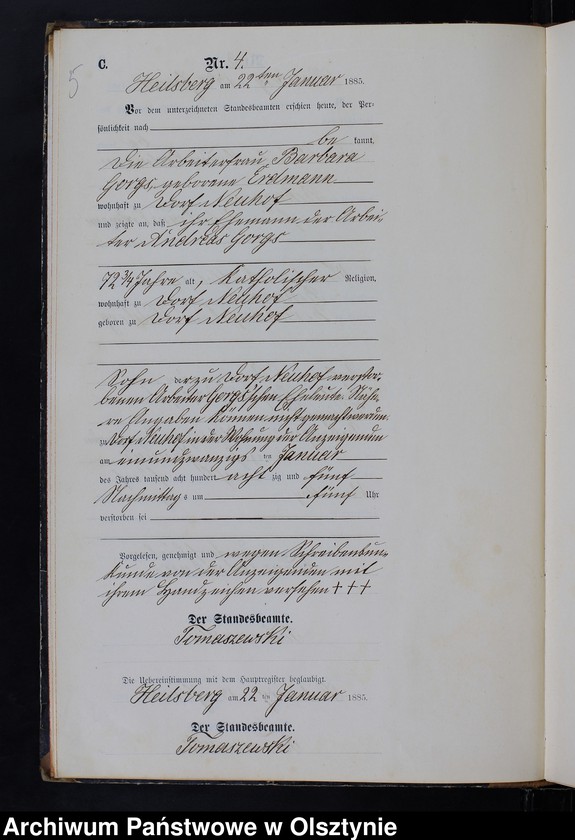 5
C. Nr. 4.
Heilsberg am 22ten Januar 1885.
Vor dem unterzeichneten Standesbeamten erschien heute, der Per-
sönlichkeit nach
be kannt,
die Arbeiterfrau Barbara
Gorgs geborene Erdmann
wohnhaft zu Dorf Neuhof
und zeigte an, daß ihr Ehemann der Arbei-
ter Andreas Gorgs
72 3/4 Jahre alt, Katholischer Religion,
wohnhaft zu Dorf Neuhof
geboren zu Dorf Neuhof
Sohn der zu Dorf Neuhof verstor-
benen Arbeiter Gorgs'schen Eheleute. Nähe-
re Angaben können nicht gemacht werden
zu Dorf Neuhof in der Wohnung der Anzeigenden
am einundzwanzigsten Januar
des Jahres tausend acht hundert acht zig und fünf
Nachmittag s um fünf Uhr
verstorben sei
Vorgelesen, genehmigt und wegen Schreibensun-
kunde von der Anzeigenden mit
ihrem Handzeichen versehen + + +
Der Standesbeamte.
Tomaszewski
Die Uebereinstimmung mit dem Hauptregister beglaubigt.
Heilsberg am 22 ten Januar 1885.
Der Standesbeamte.
Tomaszewski
Archiwum Państwowe w Olsztynie